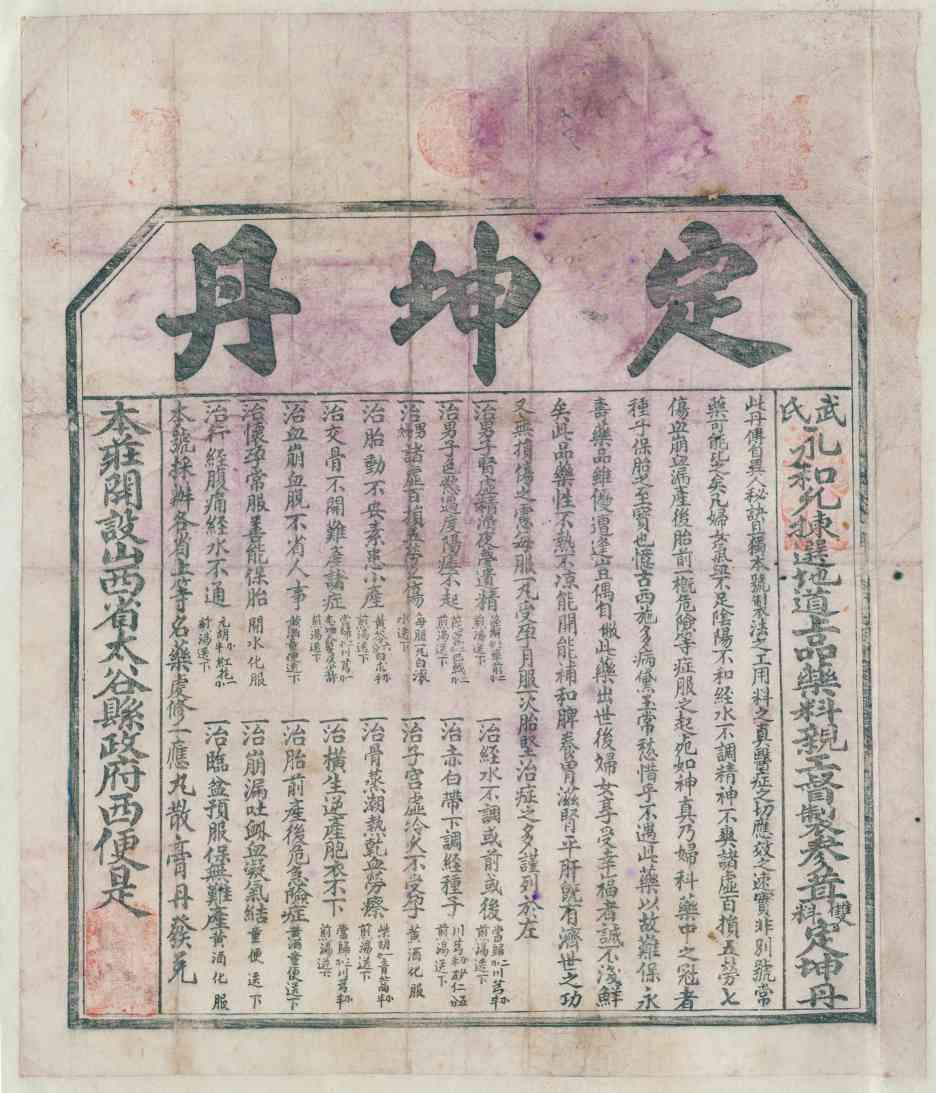 定坤丹
武氏永和兄揀選地道上品藥料親王督製參茸雙料定坤丹
此丹傳自異人秘訣且獨本號製法之工用料之真醫症之切應效之速實非別號常
藥可能比之矣凡婦女氣梁不足陰陽不和經水不調精神不爽諸虛百損五勞七
傷血崩血漏產後胎前概危險等症服之起死如神真乃婦科藥中之冠者
種子保胎之至寶也憶古西施多病黛玉常愁惜乎不遇此藥以故難保永
壽藥品雖優遭逢豈偶自此藥出世後婦女享受幸福者誠不淺鮮
矣此品藥性不熱不涼能開能補和脾養胃滋腎平肝既有濟世之功
又無損傷之虞每服一丸受孕月服一次胎堅治症之多謹列於左
一治男子腎虛精滑夜夢遺精
一治男子色慾過度陽痿不起
一治男婦諸虛百損五勞七傷 每服一丸白滾水送下
一治胎動不安素患小產 煎湯送下
一治交骨不開難產諸症 煎湯送下
一治血崩血脫不省人事 黃酒童便送下
一治懷孕常服善能保胎 開水化服
一治行經腹痛經水不通 元胡小半紅花小一煎湯送下
一治經水不調或前或後 當歸小二川芎小半煎湯送下
一治赤白帶下調經種子 煎湯送下
一治子宮虛冷久不受孕 黃酒化服
一治骨蒸潮熱乾血勞瘵 煎湯送下
一治橫生逆產胞衣不下 當歸小二川芎小半煎湯送下
一治胎前產後危急險症 黃酒童便送下
一治崩漏吐衂血凝氣結 童便送下
一治臨盆預服保無難產 黃酒化服
本號採辦各省上等名藥虔修一應丸散膏丹發兌
本莊開設山西省太谷縣政府西便是